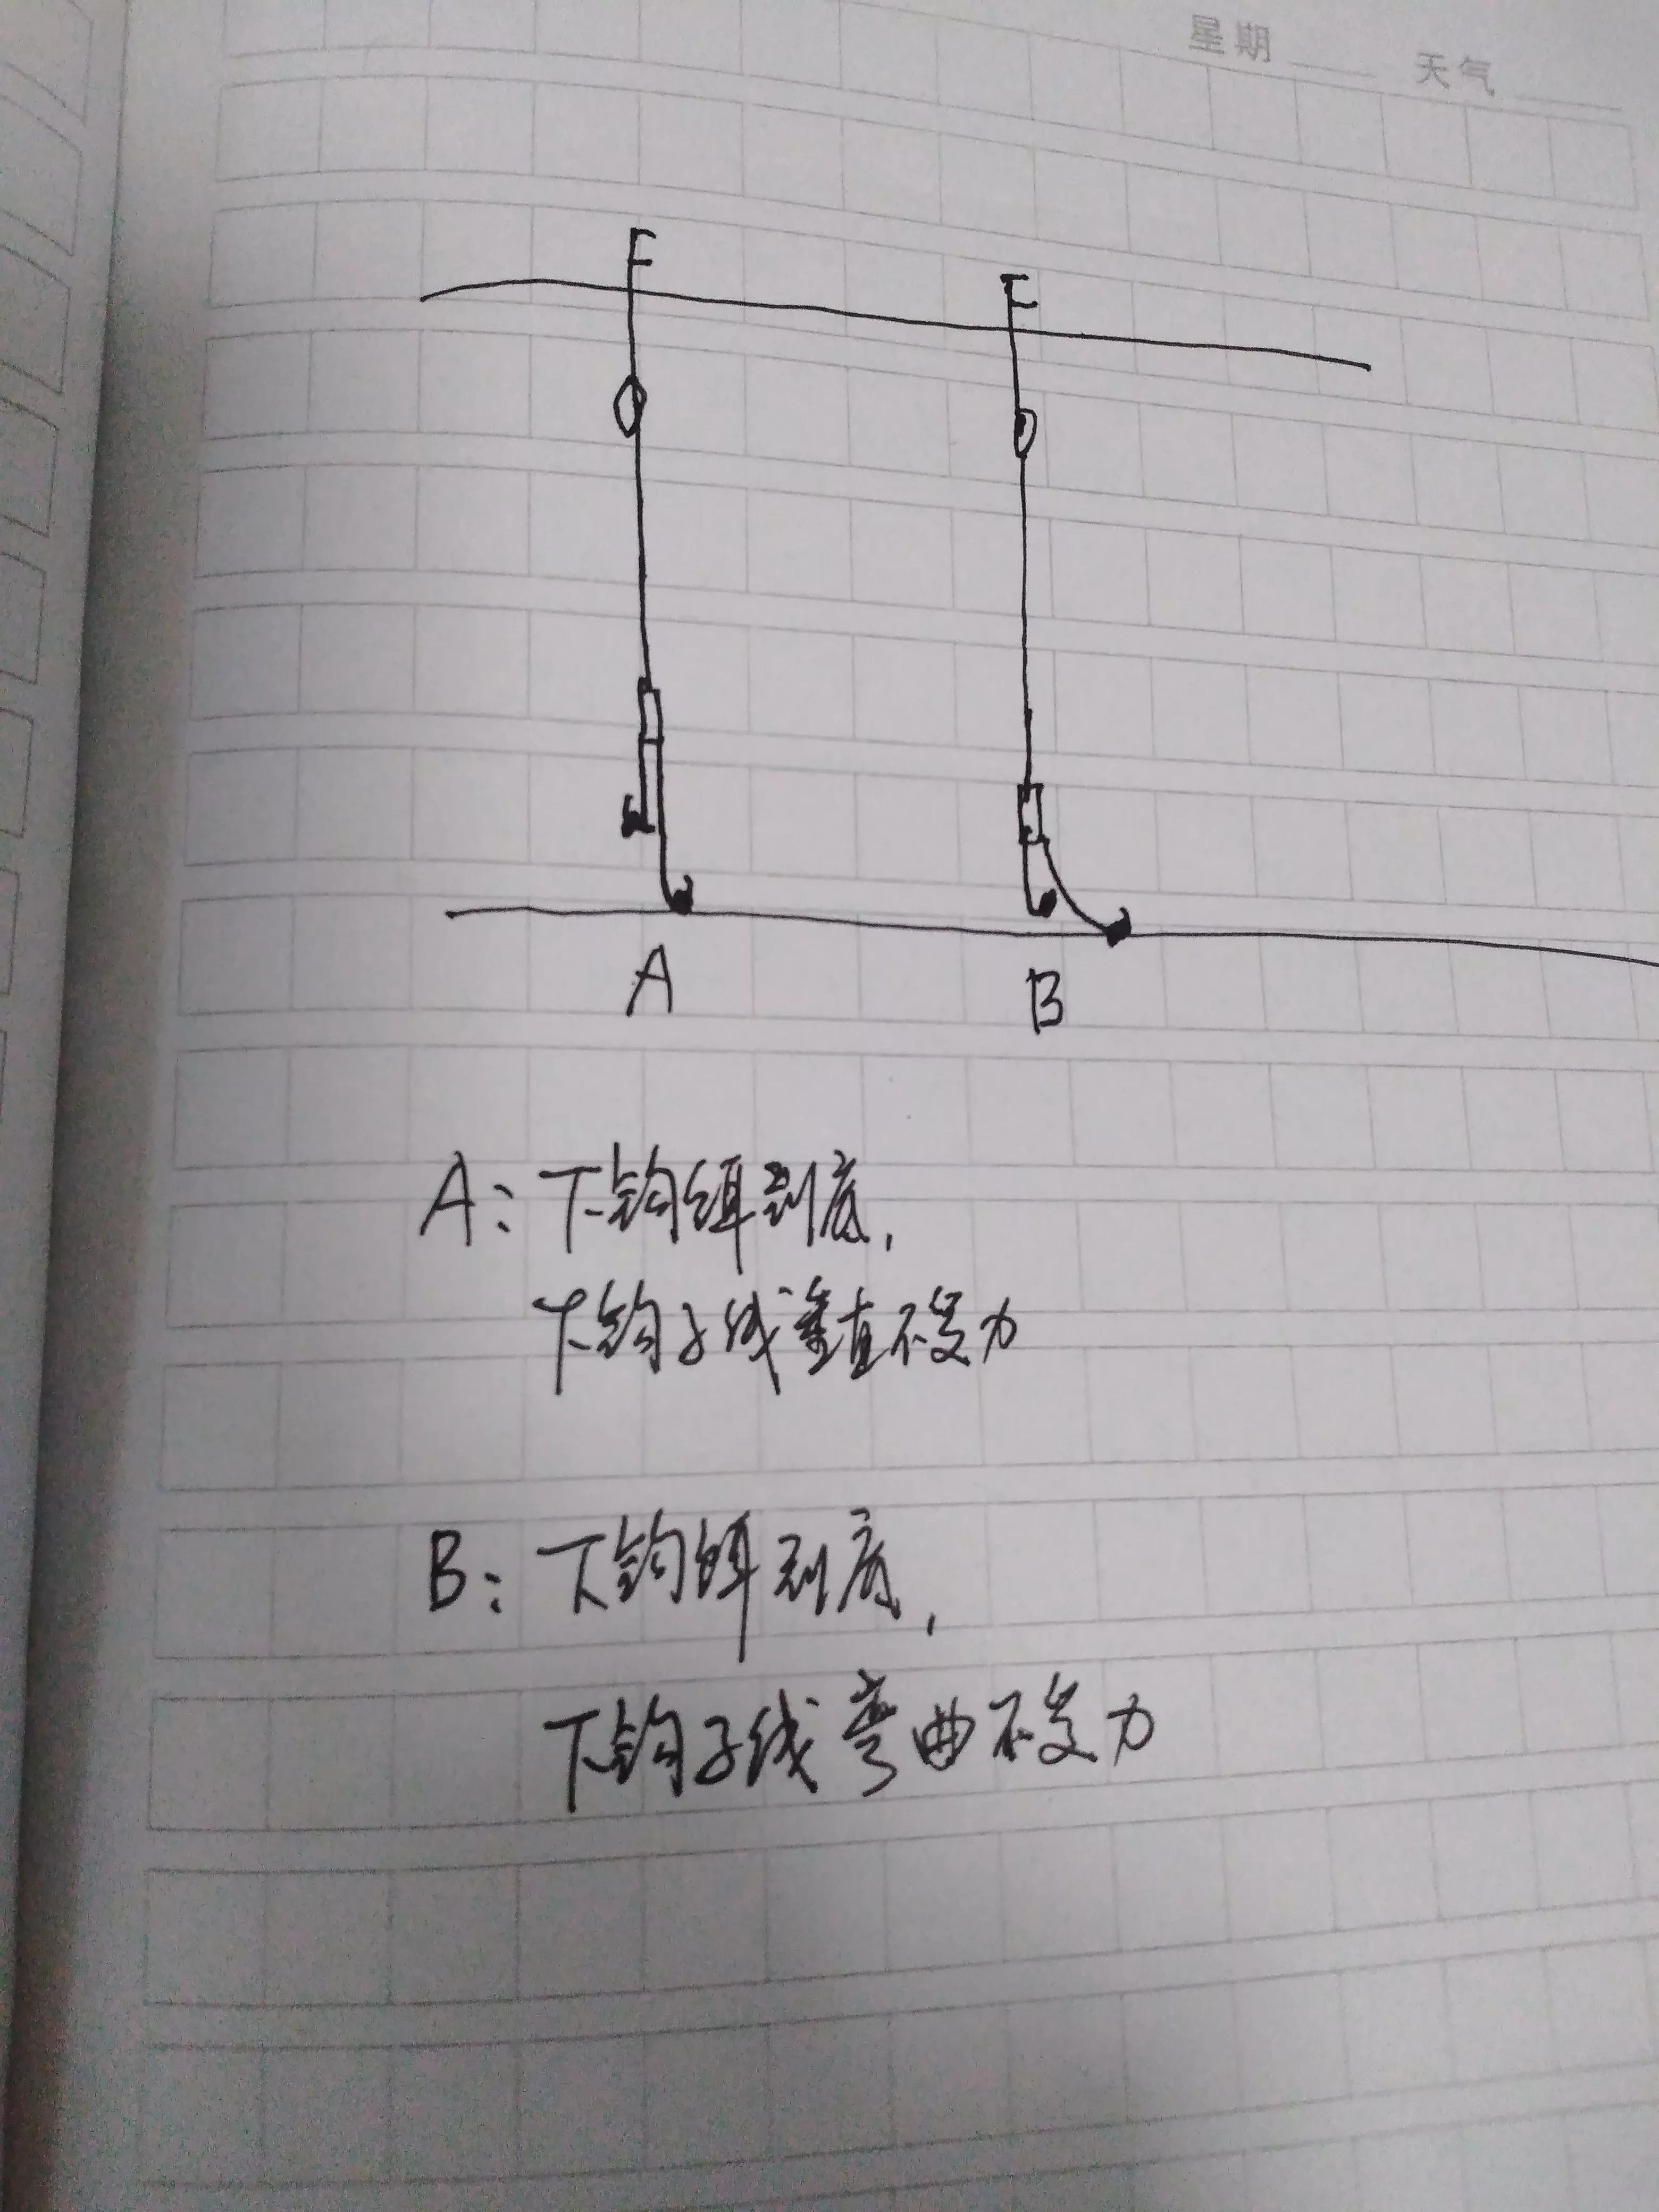 星期 天气
A B
A: 下钩饵到底,
下钩子线垂直不受力
B: 下钩饵到底,
下钩子线弯曲不受力